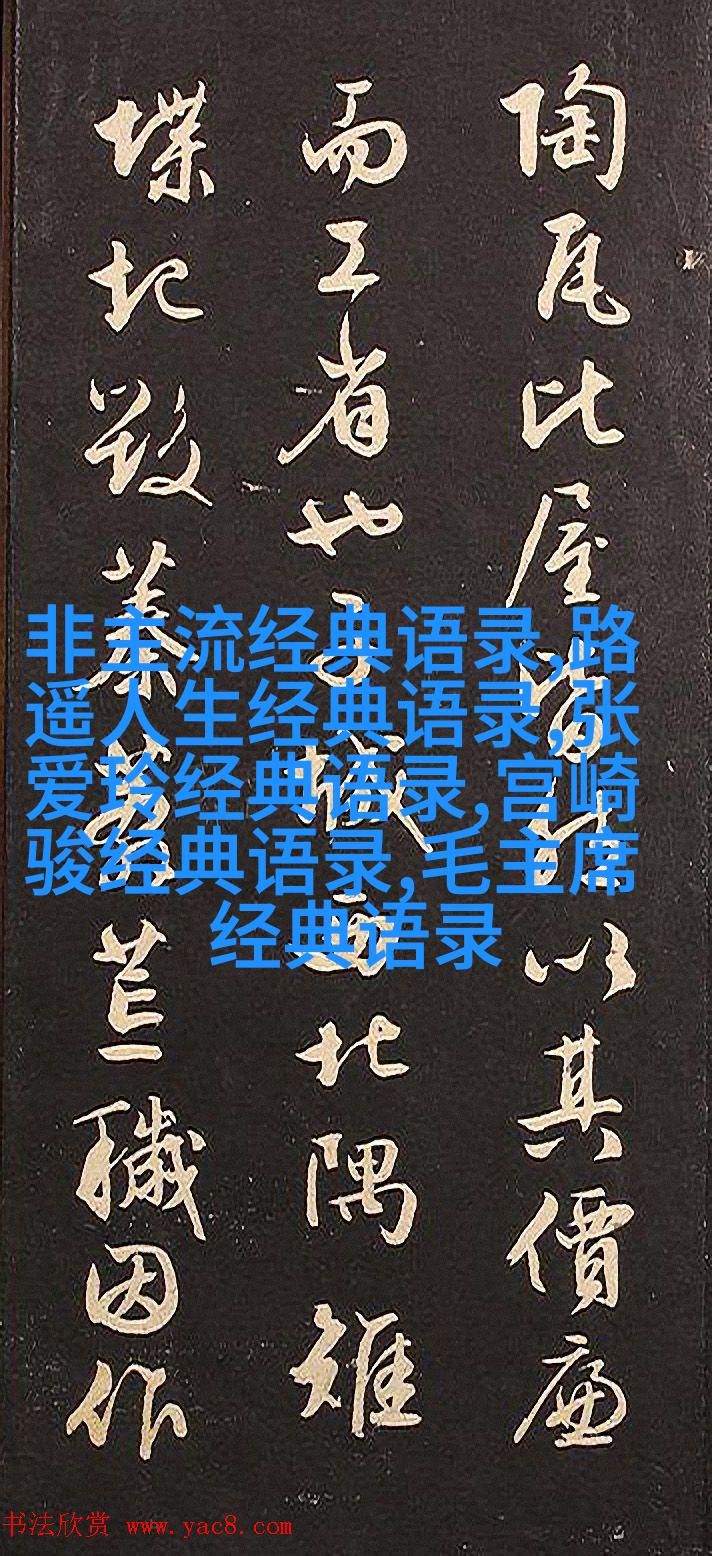 陶瓦比屋皆然以其價廉
而工省也子城西北隅雉
堞圮毀蓁莽荒穢因作
非主流经典语录,路
遥人生经典语录,张
爱玲经典语录,宫崎
骏经典语录,毛主席
经典语录
书法欣赏 www.yac8.com